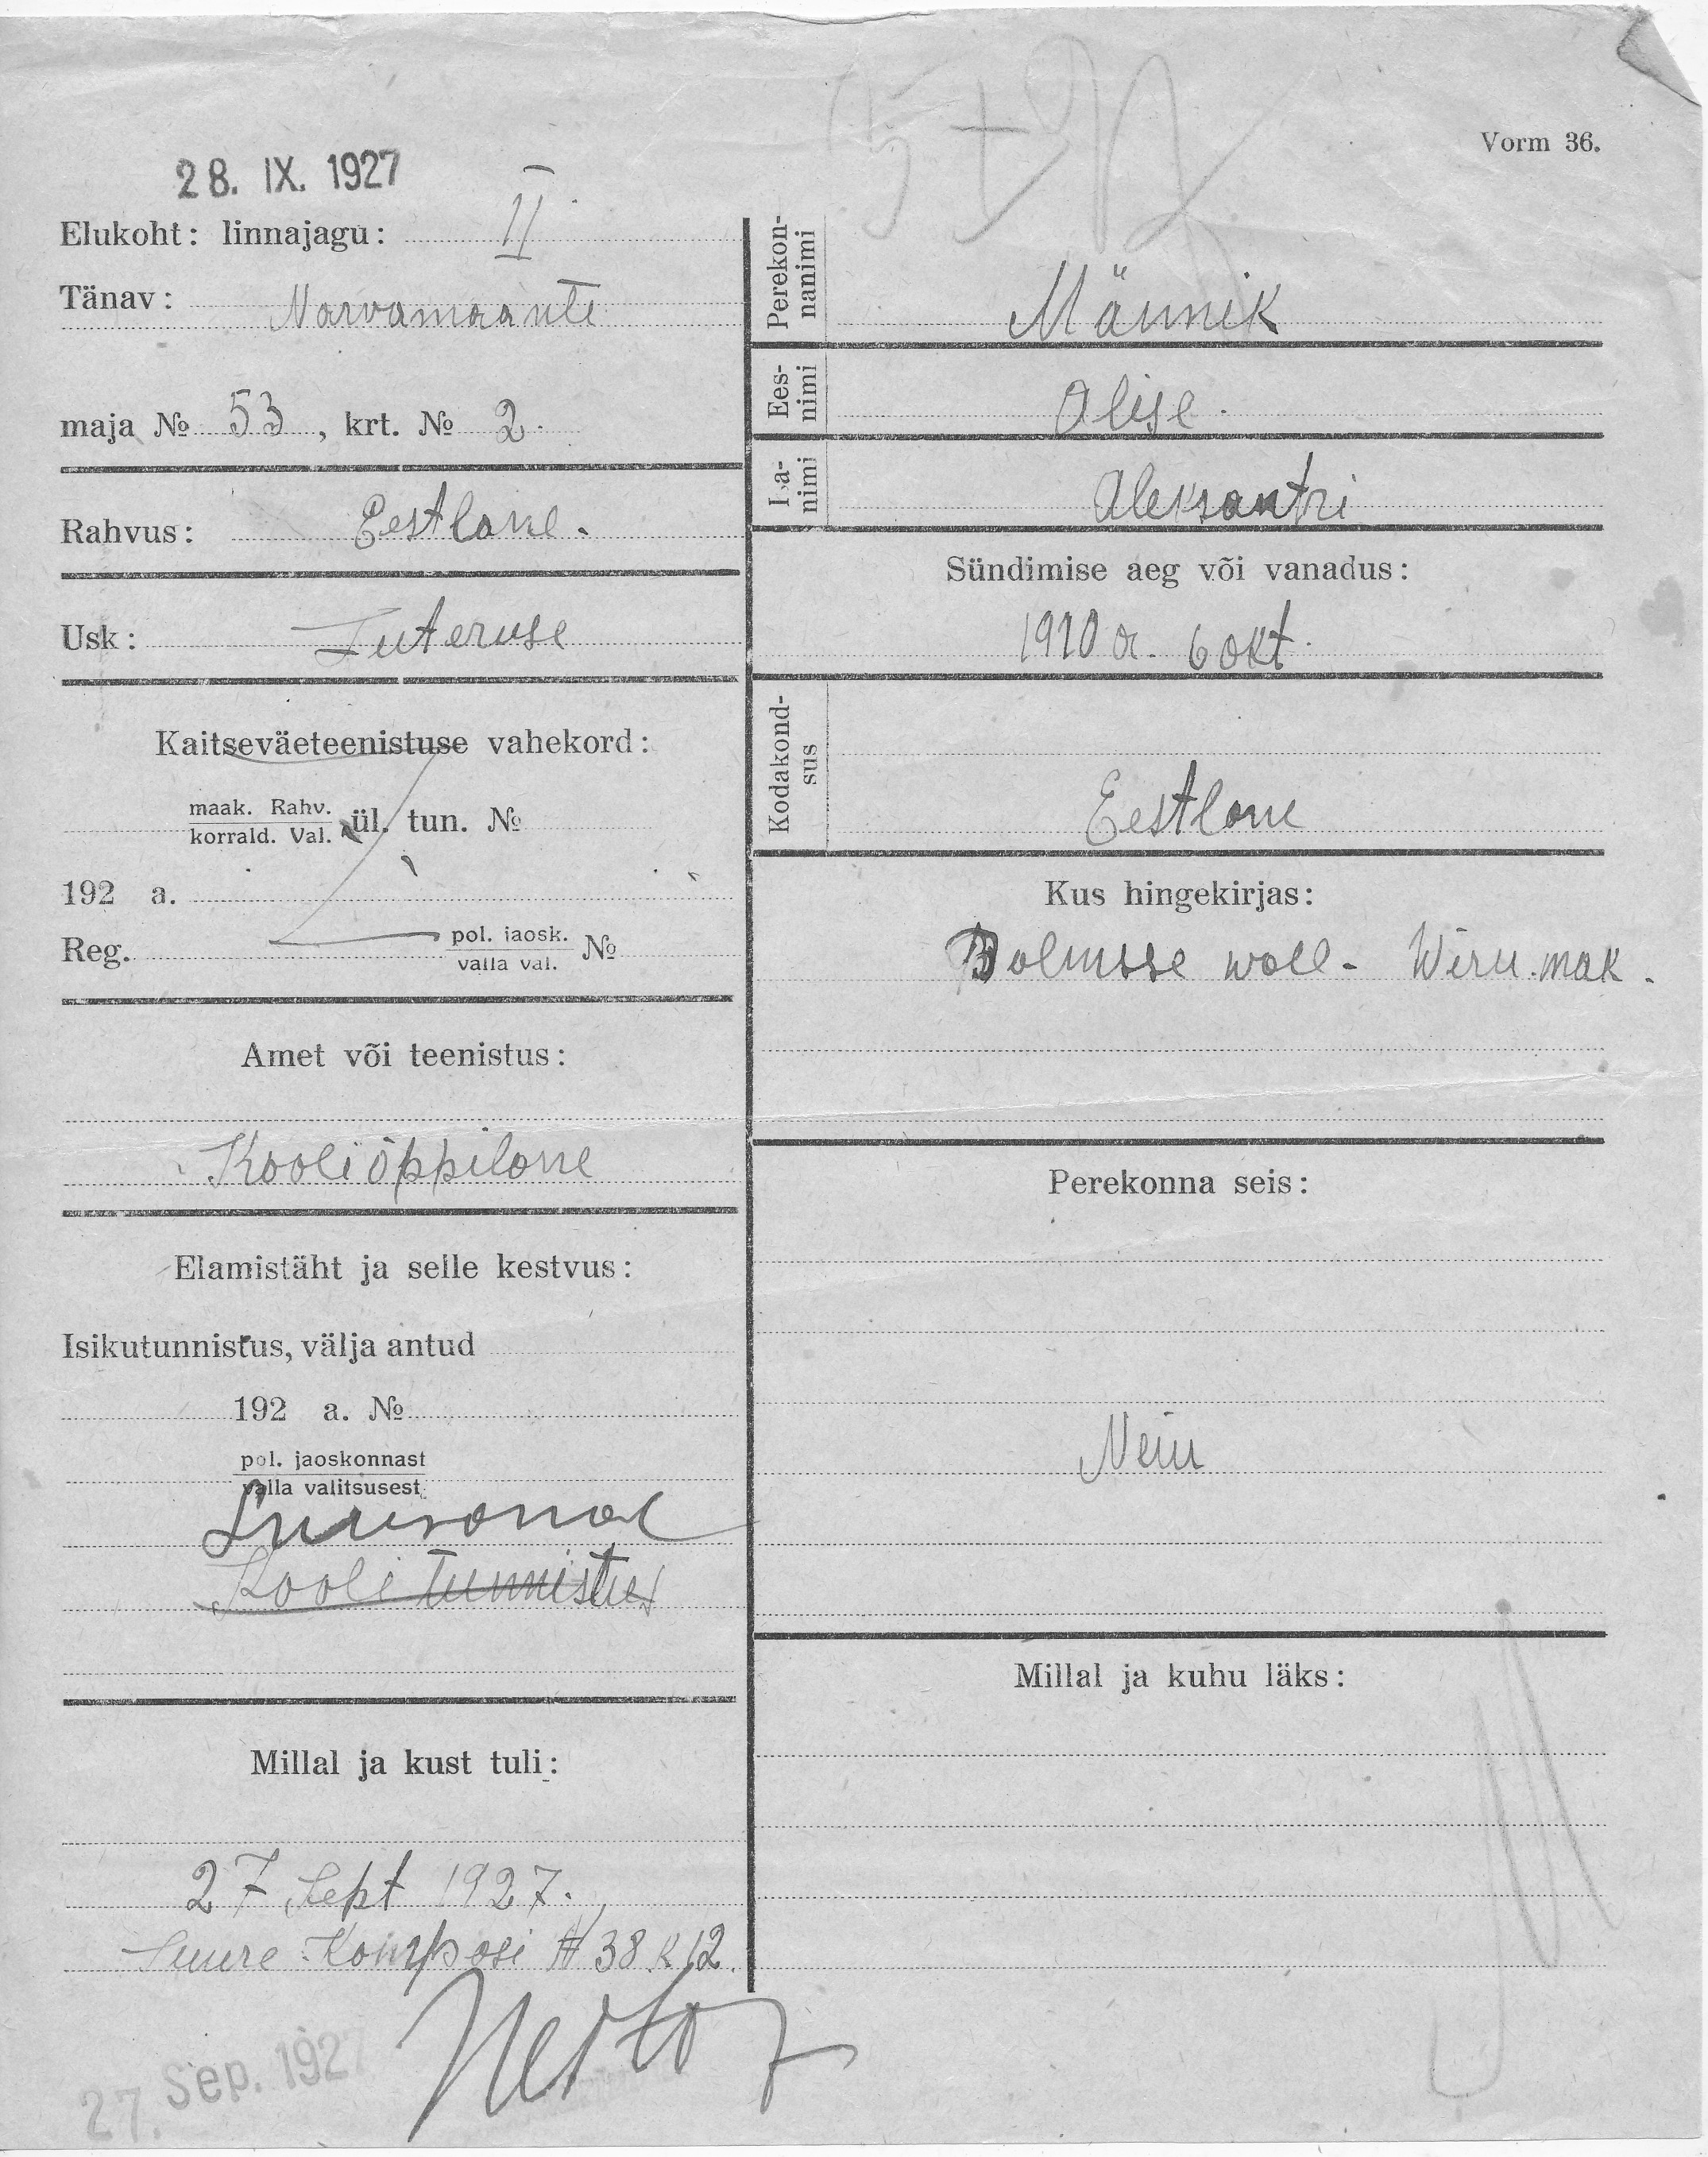 Vorm 36.
28. IX. 1927
Elukoht: linnajagu: II
Tänav: Narvamaante
maja № 53, krt. № 2.
Rahvus: Eestlane.
Usk: Luteruse
Kaitseväeteenistuse vahekord:
maak. Rahv.
korrald. Val. ül. tun. №
192 a.
Reg. pol. jaosk.
valla val. №
Amet või teenistus:
Kooliõppilane
Elamistäht ja selle kestvus:
Isikutunnistus, välja antud
192 a. №
pol. jaoskonnast
valla valitsusest
Suusanal
Kooli tunnistus
Millal ja kust tuli:
27 Sept 1927.
Suure Kompasi № 38 k 12.
27. Sep. 1927
Perekon-
nanimi
Männik
Ees-
nimi
Alise.
Isa-
nimi
Aleksantri
Sündimise aeg või vanadus:
1910 a. 6 okt.
Kodakond-
sus
Eestlane
Kus hingekirjas:
woll. Wiru.mak.
Perekonna seis:
Neiu
Millal ja kuhu läks: